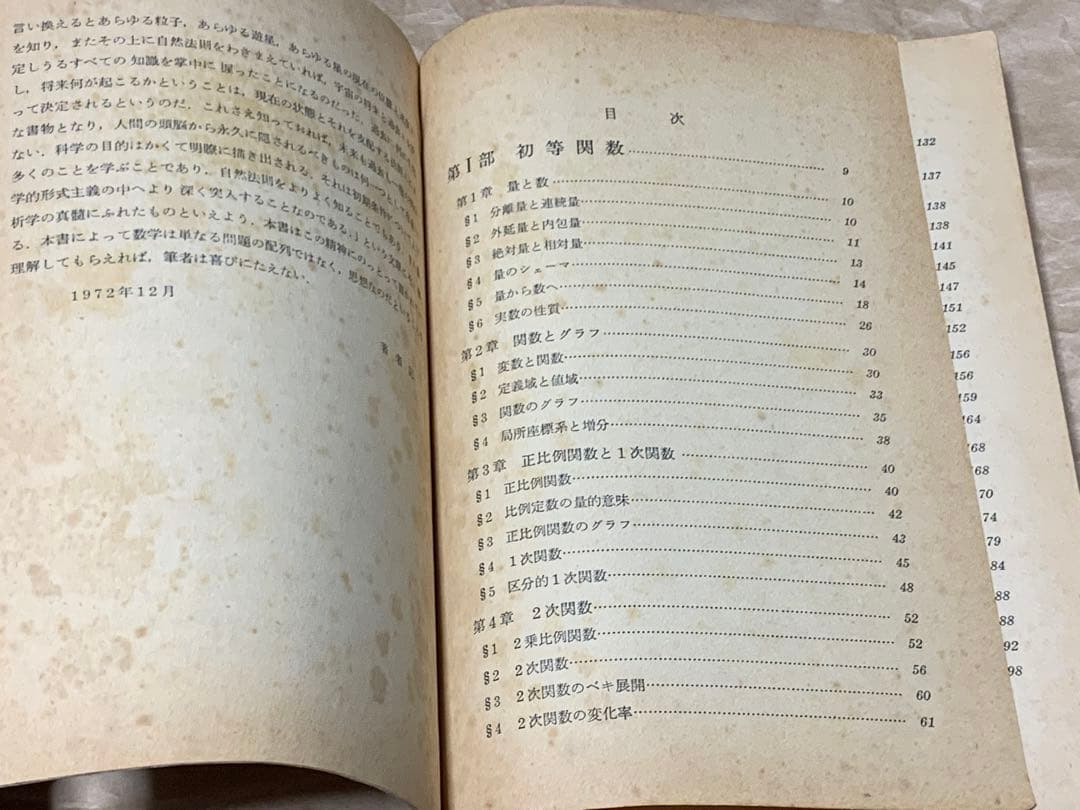 言い換えるとあらゆる粒子，あらゆる遊星，あらゆる星の現在の位置と
を知り，またその上に自然法則をわきまえていれば，宇宙の将来と過去
定しうるすべての知識を掌中に握ったことになるのだった．過去
し，将来何が起こるかということは，現在の状態とそれを支配する法則
って決定されるというのだ．これさえ知っておれば，未来も過去も
な書物となり，人間の頭脳から永久に隠されるべきものは何一つとして
ない．科学の目的はかくて明瞭に描き出される．それは初期条件
多くのことを学ぶことであり，自然法則をよりよく知ることでもあり，
学的形式主義の中へより深く突入することなのである．」という文章
析学の真髄にふれたものといえよう．本書はこの精神にのっとって
る．本書によって数学は単なる問題の配列ではなく，思想なのだという
理解してもらえれば，筆者は喜びにたえない．
1972年12月
著者
目次
第Ⅰ部 初等関数 9
第1章 量と数 10
§1 分離量と連続量 10
§2 外延量と内包量 11
§3 絶対量と相対量 13
§4 量のシェーマ 14
§5 量から数へ 18
§6 実数の性質 26
第2章 関数とグラフ 30
§1 変数と関数 30
§2 定義域と値域 33
§3 関数のグラフ 35
§4 局所座標系と増分 38
第3章 正比例関数と1次関数 40
§1 正比例関数 40
§2 比例定数の量的意味 42
§3 正比例関数のグラフ 43
§4 1次関数 45
§5 区分的1次関数 48
第4章 2次関数 52
§1 2乗比例関数 52
§2 2次関数 56
§3 2次関数のベキ展開 60
§4 2次関数の変化率 61
132
137
138
138
141
145
147
151
152
156
156
159
164
68
68
70
74
79
84
88
92
98